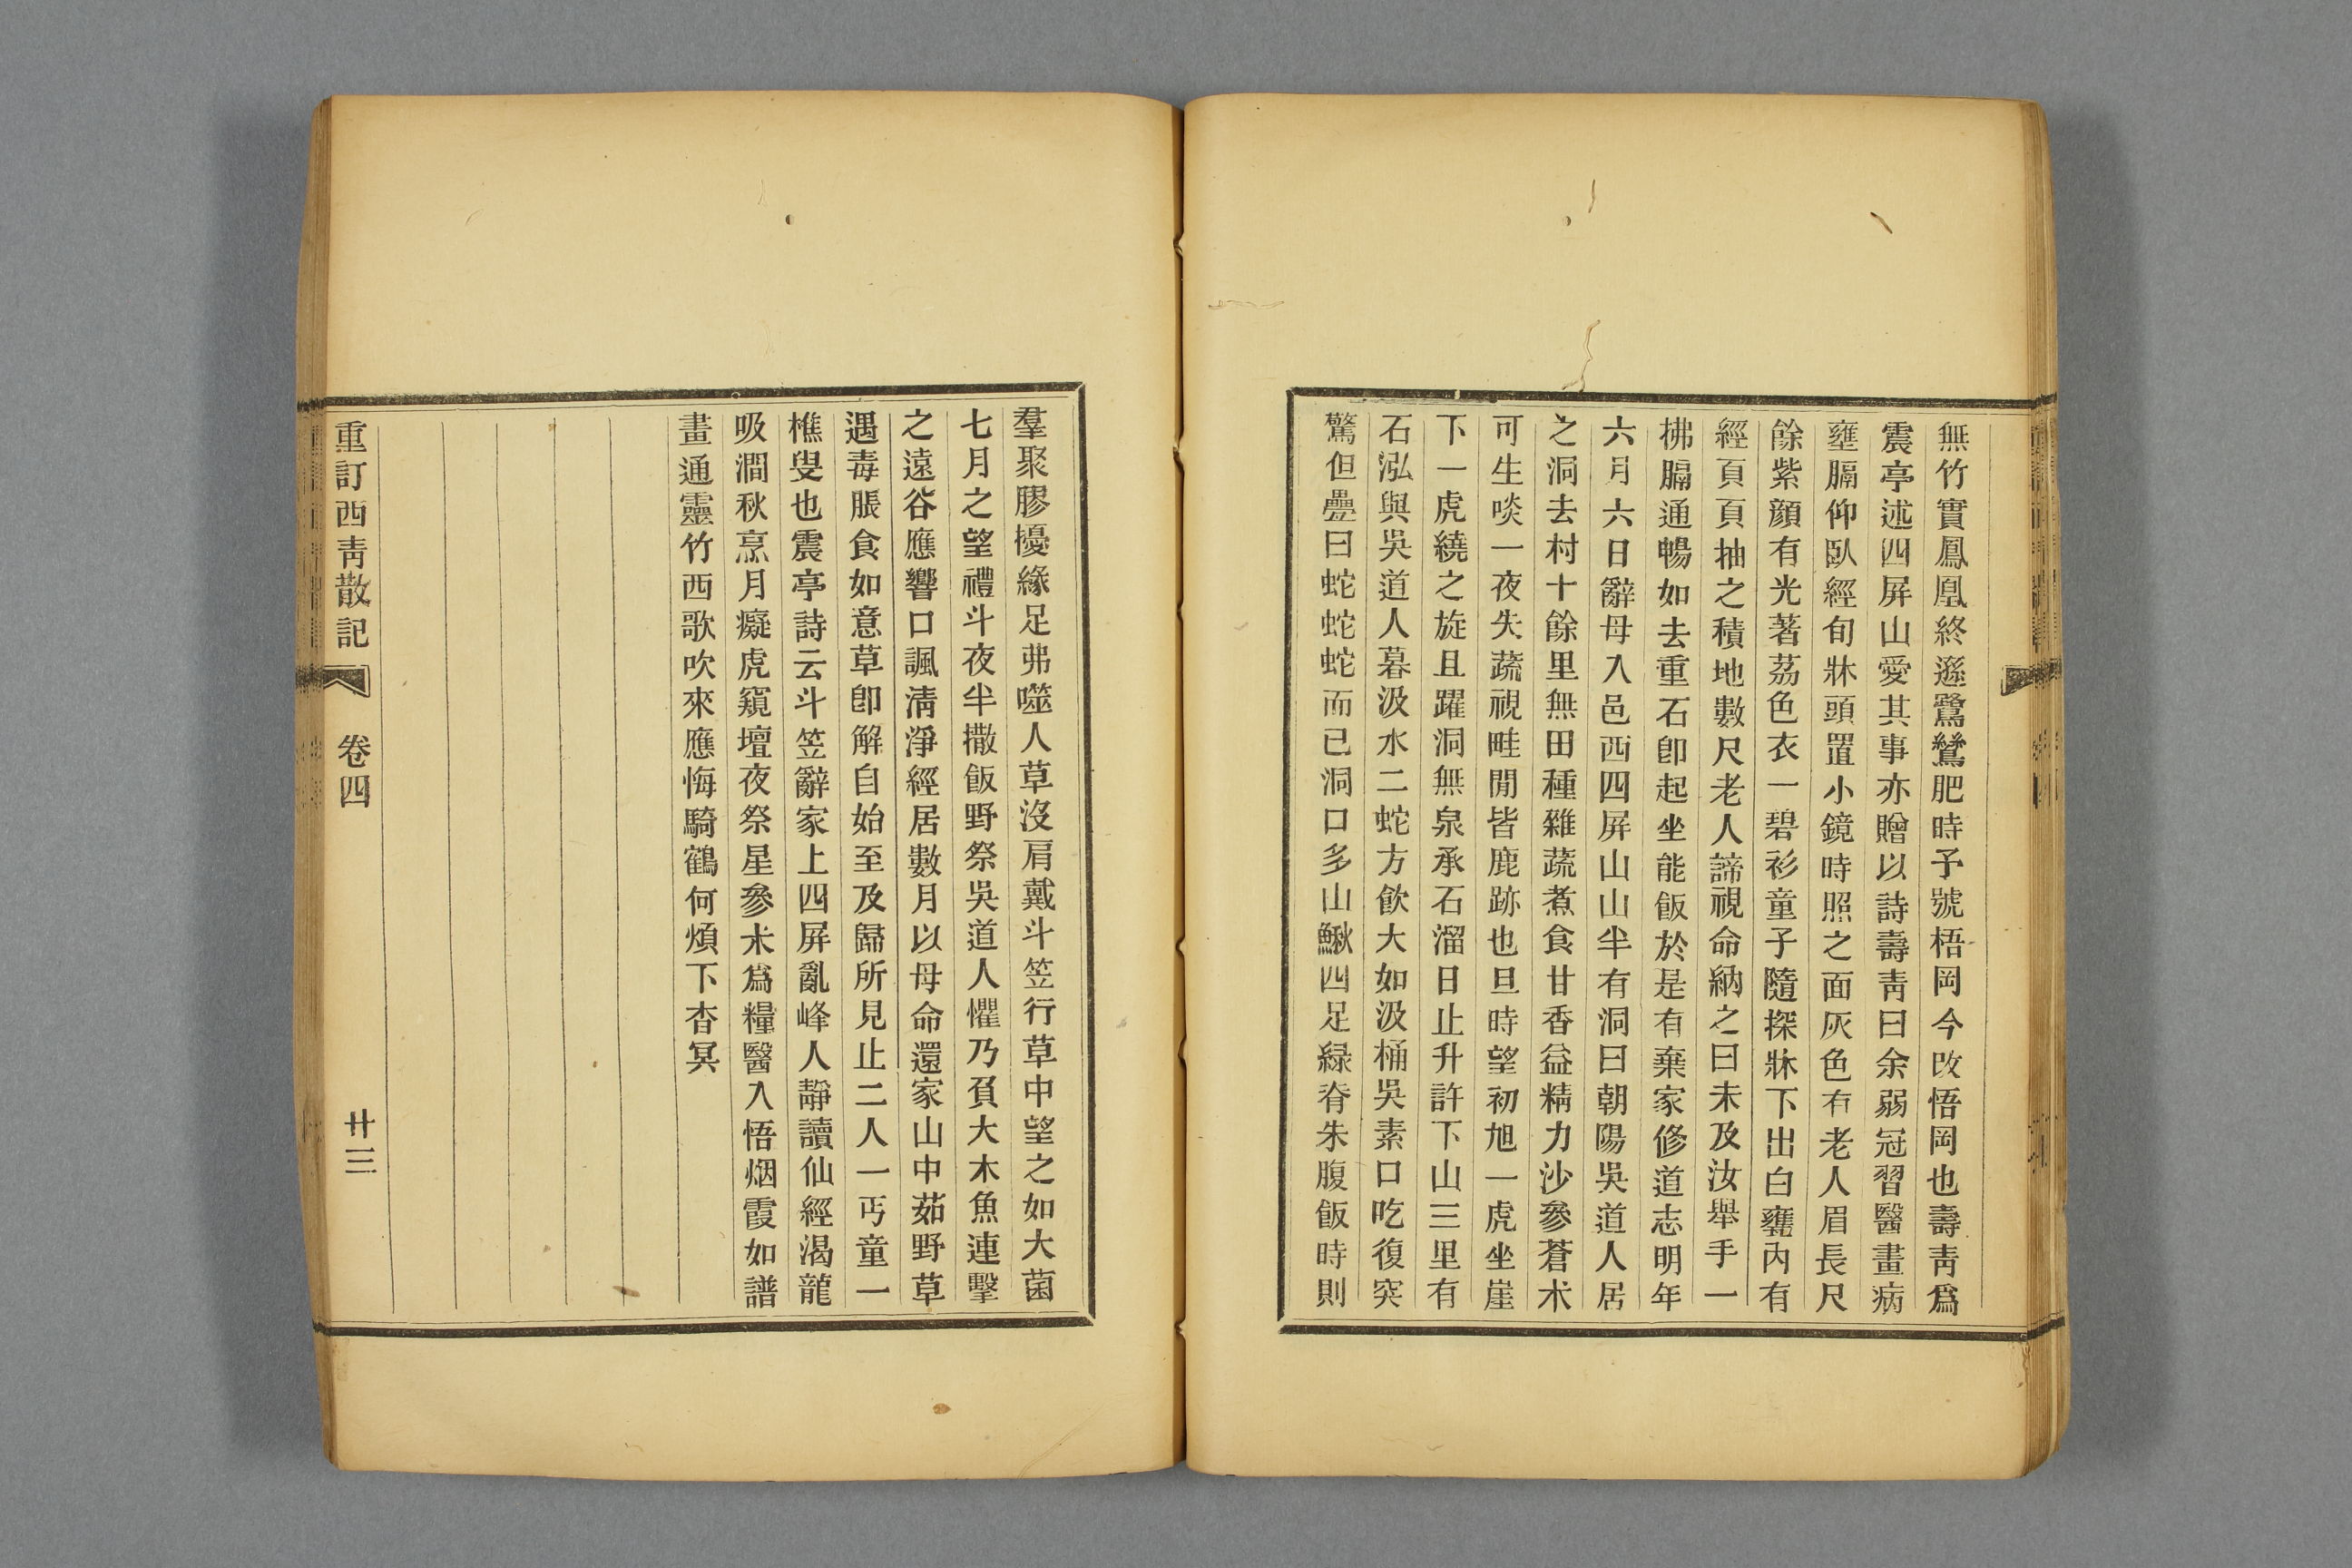 無竹實鳳凰終遜鷺鷥肥時予號梧岡今改悟岡也壽靑爲
震亭述四屏山愛其事亦贈以詩壽靑曰余弱冠習醫晝病
壅膈仰臥經旬牀頭置小鏡時照之面灰色有老人眉長尺
餘紫顔有光著荔色衣一碧衫童子隨探牀下出白甕內有
經頁頁抽之積地數尺老人諦視命納之曰未及汝舉手一
拂膈通暢如去重石卽起坐能飯於是有棄家修道志明年
六月六日辭母入邑西四屏山山半有洞曰朝陽吳道人居
之洞去村十餘里無田種雜蔬煮食甘香益精力沙參蒼朮
可生啖一夜失蔬視畦閒皆鹿跡也旦時望初旭一虎坐崖
下一虎繞之旋且躍洞無泉承石溜日止升許下山三里有
石泓與吳道人暮汲水二蛇方飲大如汲桶吳素口吃復突
驚但疊曰蛇蛇蛇而已洞口多山鰍四足緑脊朱腹飯時則
羣聚膠擾緣足弗噬人草沒肩戴斗笠行草中望之如大菌
七月之望禮斗夜半撒飯野祭吳道人懼乃負大木魚連擊
之遠谷應響口諷淸淨經居數月以母命還家山中茹野草
遇毒脹食如意草卽解自始至及歸所見止二人一丐童一
樵叟也震亭詩云斗笠辭家上四屏亂峰人靜讀仙經渴龍
吸澗秋烹月癡虎窺壇夜祭星參朮爲糧醫入悟烟霞如譜
畫通靈竹西歌吹來應悔騎鶴何煩下杳冥
重訂西靑散記 卷四 廿三